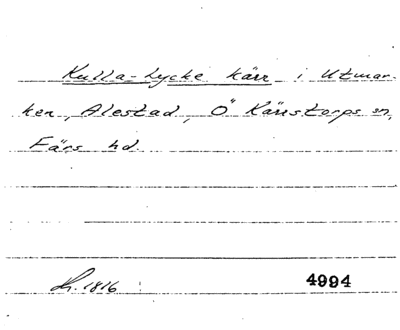 Kulla-Lycke kärr i Utmar-
ken, Alestad, Ö Kärrstorps sn,
Färs hd.
Lk. 1816 4994